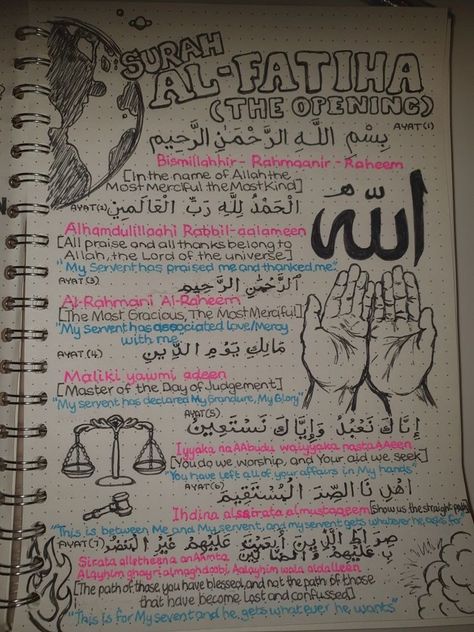 SURAH
AL-FATIHA
(THE OPENING)
AYAT (1)
بِسْمِ اللَّهِ الرَّحْمَٰنِ الرَّحِيمِ
Bismillahhir - Rahmaanir - Raheem
[In the name of Allah the
The Most Merciful the Most Kind]
AYAT (2) الْحَمْدُ لِلَّهِ رَبِّ الْعَالَمِينَ
الله
Alhamdulillaahi Rabbil-aalameen
[All praise and all thanks belong to
Allah, the Lord of the universe]
"My Servent has praised me and thanked me."
AYAT (3) الرَّحْمَٰنِ الرَّحِيمِ
Al-Rahmani Al-Raheem
[The Most Gracious, The Most Merciful]
"My Servent has associated love/Mercy
with me"
AYAT. (4) مَالِكِ يَوْمِ الدِّينِ
Maliki yawmi adeen
[Master of the Day of Judgement]
"My servent has declared My Grandure, My Glory"
AYAT (5)
إِيَّاكَ نَعْبُدُ وَإِيَّاكَ نَسْتَعِينُ
Iyyaka naAAbudu waiyyaka nastaAAeen
[You do we worship, and Your aid we seek]
"You have left all of your affairs in My hands"
AYAT (6)
اهْدِنَا الصِّرَ الْمُسْتَقِيمَ
Ihdina alsirata almustaqeem [Show us the straight path]
"This is between Me and My servent, and my servent gets whatever he asks for"
AYAT (7) صِرَاطَ الَّذِينَ أَنْعَمْتَ عَلَيْهِمْ غَيْرِ
عَلَيْهِمْ وَلَا الضَّالِّينَ
Sirata allatheena anAAamta
AAalayhim ghayri almaghdoobi AAalayhim wala aldalleen
[The path of those you have blessed, and not the path of those
that have become lost and confused]
"This is for My Sevent and he gets what ever he wants"